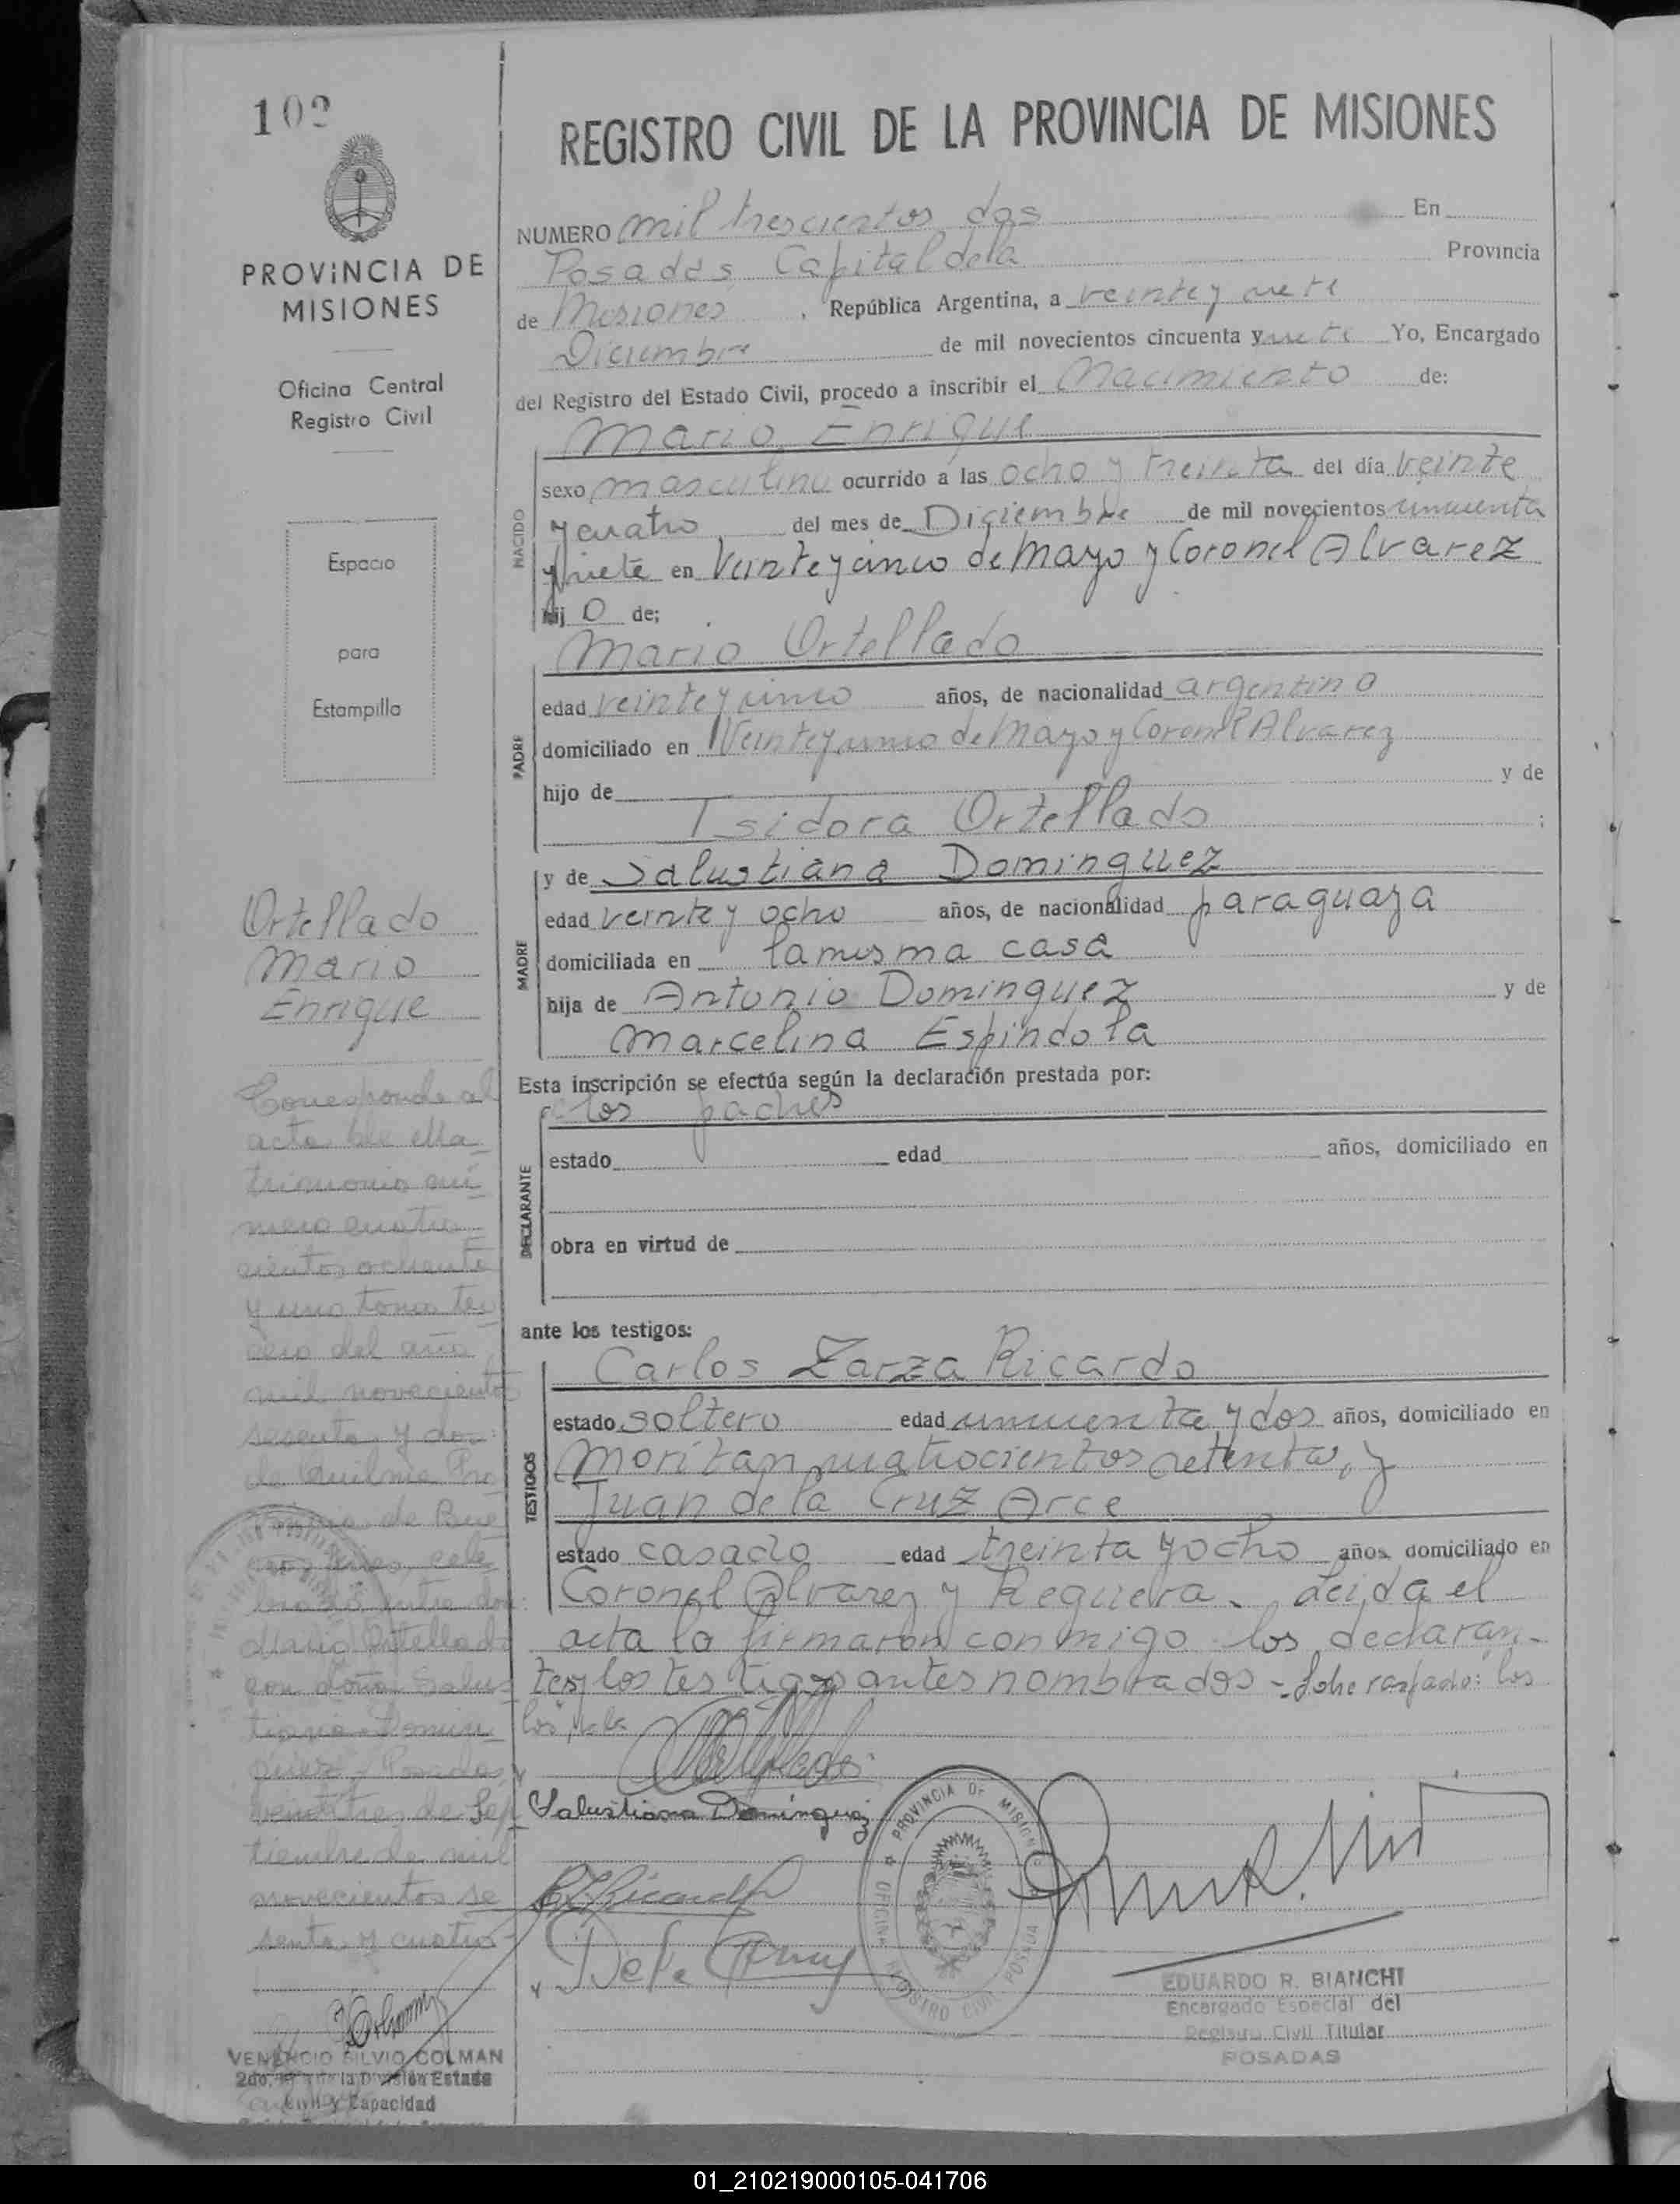 102
PROVINCIA DE
MISIONES
Oficina Central
Registro Civil
Espacio
para
Estampilla
Ortellado
Mario
Enrique
Corresponde al
acta de Ma
trimonio nú
mero cuatro
cientos ochenta
y uno tomo ter
cero del año
mil novecientos
sesenta y dos
de Quilmes Pro
vincia de Bue
nos Aires, cele
brado entre don
Mario Ortellado
con doña Salus
tiana Domin
guez, Posadas,
veintitres de Sep
tiembre de mil
novecientos se
senta y cuatro
VENANCIO SILVIO COLMAN
2do. la División Estado
Civil y Capacidad
REGISTRO CIVIL DE LA PROVINCIA DE MISIONES
NUMERO mil trescientos dos En
Posadas Capital de la Provincia
de Misiones, República Argentina, a veinte y siete
Diciembre de mil novecientos cincuenta y siete Yo, Encargado
del Registro del Estado Civil, procedo a inscribir el Nacimiento de:
Mario Enrique
NACIDO
sexo masculino ocurrido a las ocho y treinta del día veinte
y cuatro del mes de Diciembre de mil novecientos cincuenta
y siete en Veinte y cinco de Mayo y Coronel Alvarez
hij o de;
Mario Ortellado
PADRE
edad veinte y cinco años, de nacionalidad argentina
domiciliado en Veinte y cinco de Mayo y Coronel Alvarez
hijo de y de
Isidora Ortellado ;
y de Salustiana Dominguez
MADRE
edad veinte y ocho años, de nacionalidad paraguaya
domiciliada en la misma casa
hija de Antonio Dominguez y de
Marcelina Espindola
Esta inscripción se efectúa según la declaración prestada por:
los padres
DECLARANTE
estado edad años, domiciliado en
obra en virtud de
ante los testigos:
Carlos Zarza Ricardo
TESTIGOS
estado soltero edad cincuenta y dos años, domiciliado en
Moritan cuatrocientos setenta, y
Juan de la Cruz Arce
estado casado edad treinta y ocho años, domiciliado en
Coronel Alvarez y Requera. Leida el
acta la firmaron conmigo los declaran-
tes y los testigos antes nombrados - Sobre raspado: los
los
Salustiana Dominguez
PROVINCIA DE MISIONES
OFICINA REGISTRO CIVIL POSADAS
EDUARDO R. BIANCHI
Encargado Especial del
Registro Civil Titular
POSADAS
01_210219000105-041706